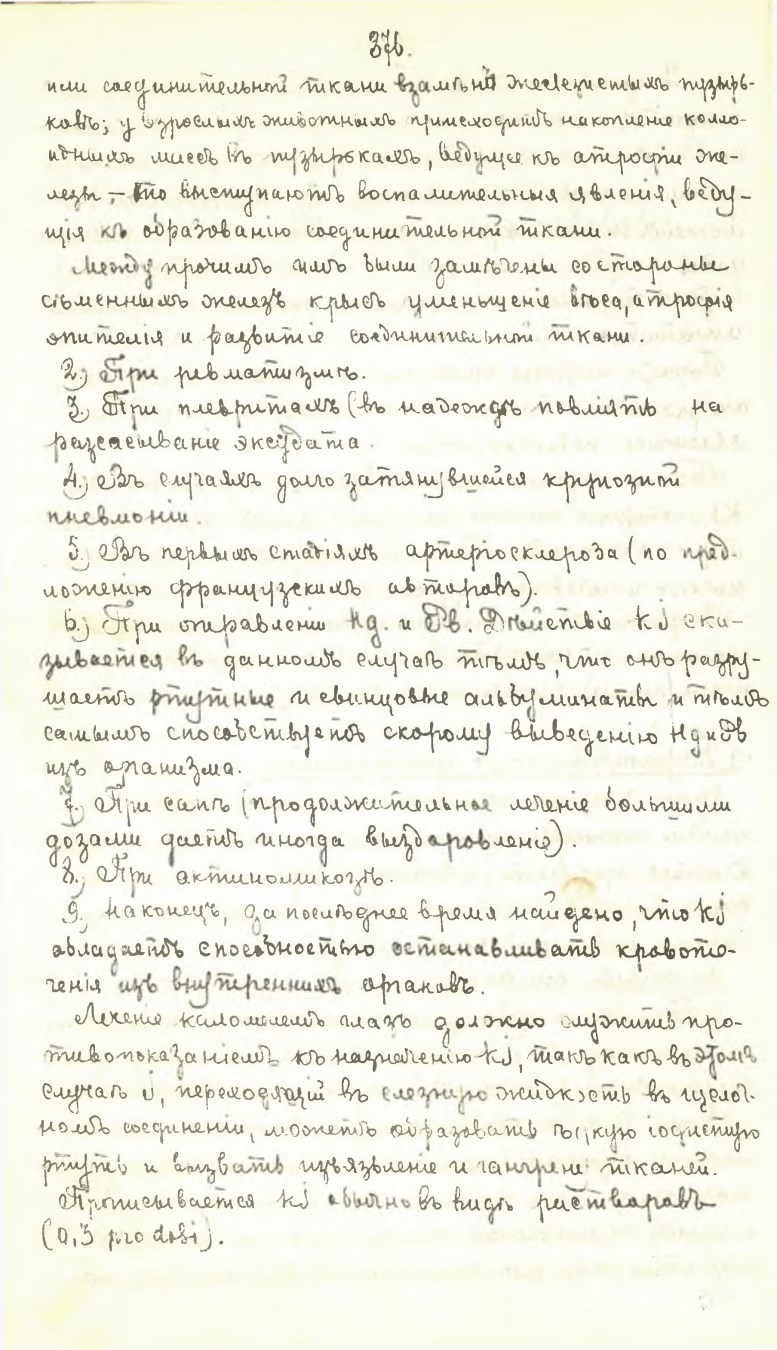 376.
или соединительной ткани взамѣнъ железистыхъ пузырь-
ковъ; у взрослыхъ животныхъ происходитъ накопленіе колло-
идныхъ массъ въ пузырькахъ, ведущее къ атрофіи же-
лезы, – то выступаютъ воспалительныя явленія, веду-
щія къ образованію соединительной ткани.
Между прочимъ имъ были замѣчены со стороны
сѣменныхъ железъ крысъ уменьшеніе вѣса, атрофія
эпителія и развитіе соединительной ткани.
2.) При ревматизмѣ.
3.) При плевритахъ (въ надеждѣ повліять на
разсасываніе эксудата.
4.) Въ случаяхъ долго затянувшейся крупозной
пневмоніи.
5.) Въ первыхъ стадіяхъ артеріосклероза (по пред-
ложенію французскихъ авторовъ).
6.) При отравленіи Hg. и Pb. Дѣйствіе KJ ска-
зывается въ данномъ случаѣ тѣмъ, что онъ разру-
шаетъ ртутные и свинцовые альбуминаты и тѣмъ
самымъ способствуетъ скорому выведенію Hg и Pb
изъ организма.
7.) При сапѣ (продолжительное леченіе большими
дозами даетъ иногда выздоровленіе).
8.) При актиномикозѣ.
9. Наконецъ, за послѣднее время найдено, что KJ
обладаетъ способностью останавливать кровоте-
ченія изъ внутреннихъ органовъ.
Леченіе каломелемъ глазъ должно служить про-
тивопоказаніемъ къ назначенію KJ, такъ какъ въ этомъ
случаѣ J, переходящій въ слезную жидкость въ щелоч-
номъ соединеніи, можетъ образовать ѣдкую іодистую
ртуть и вызвать изъязвленіе и гангрену тканей.
Прописывается KJ обычно въ видѣ растворовъ
(0,3 pro dosi).